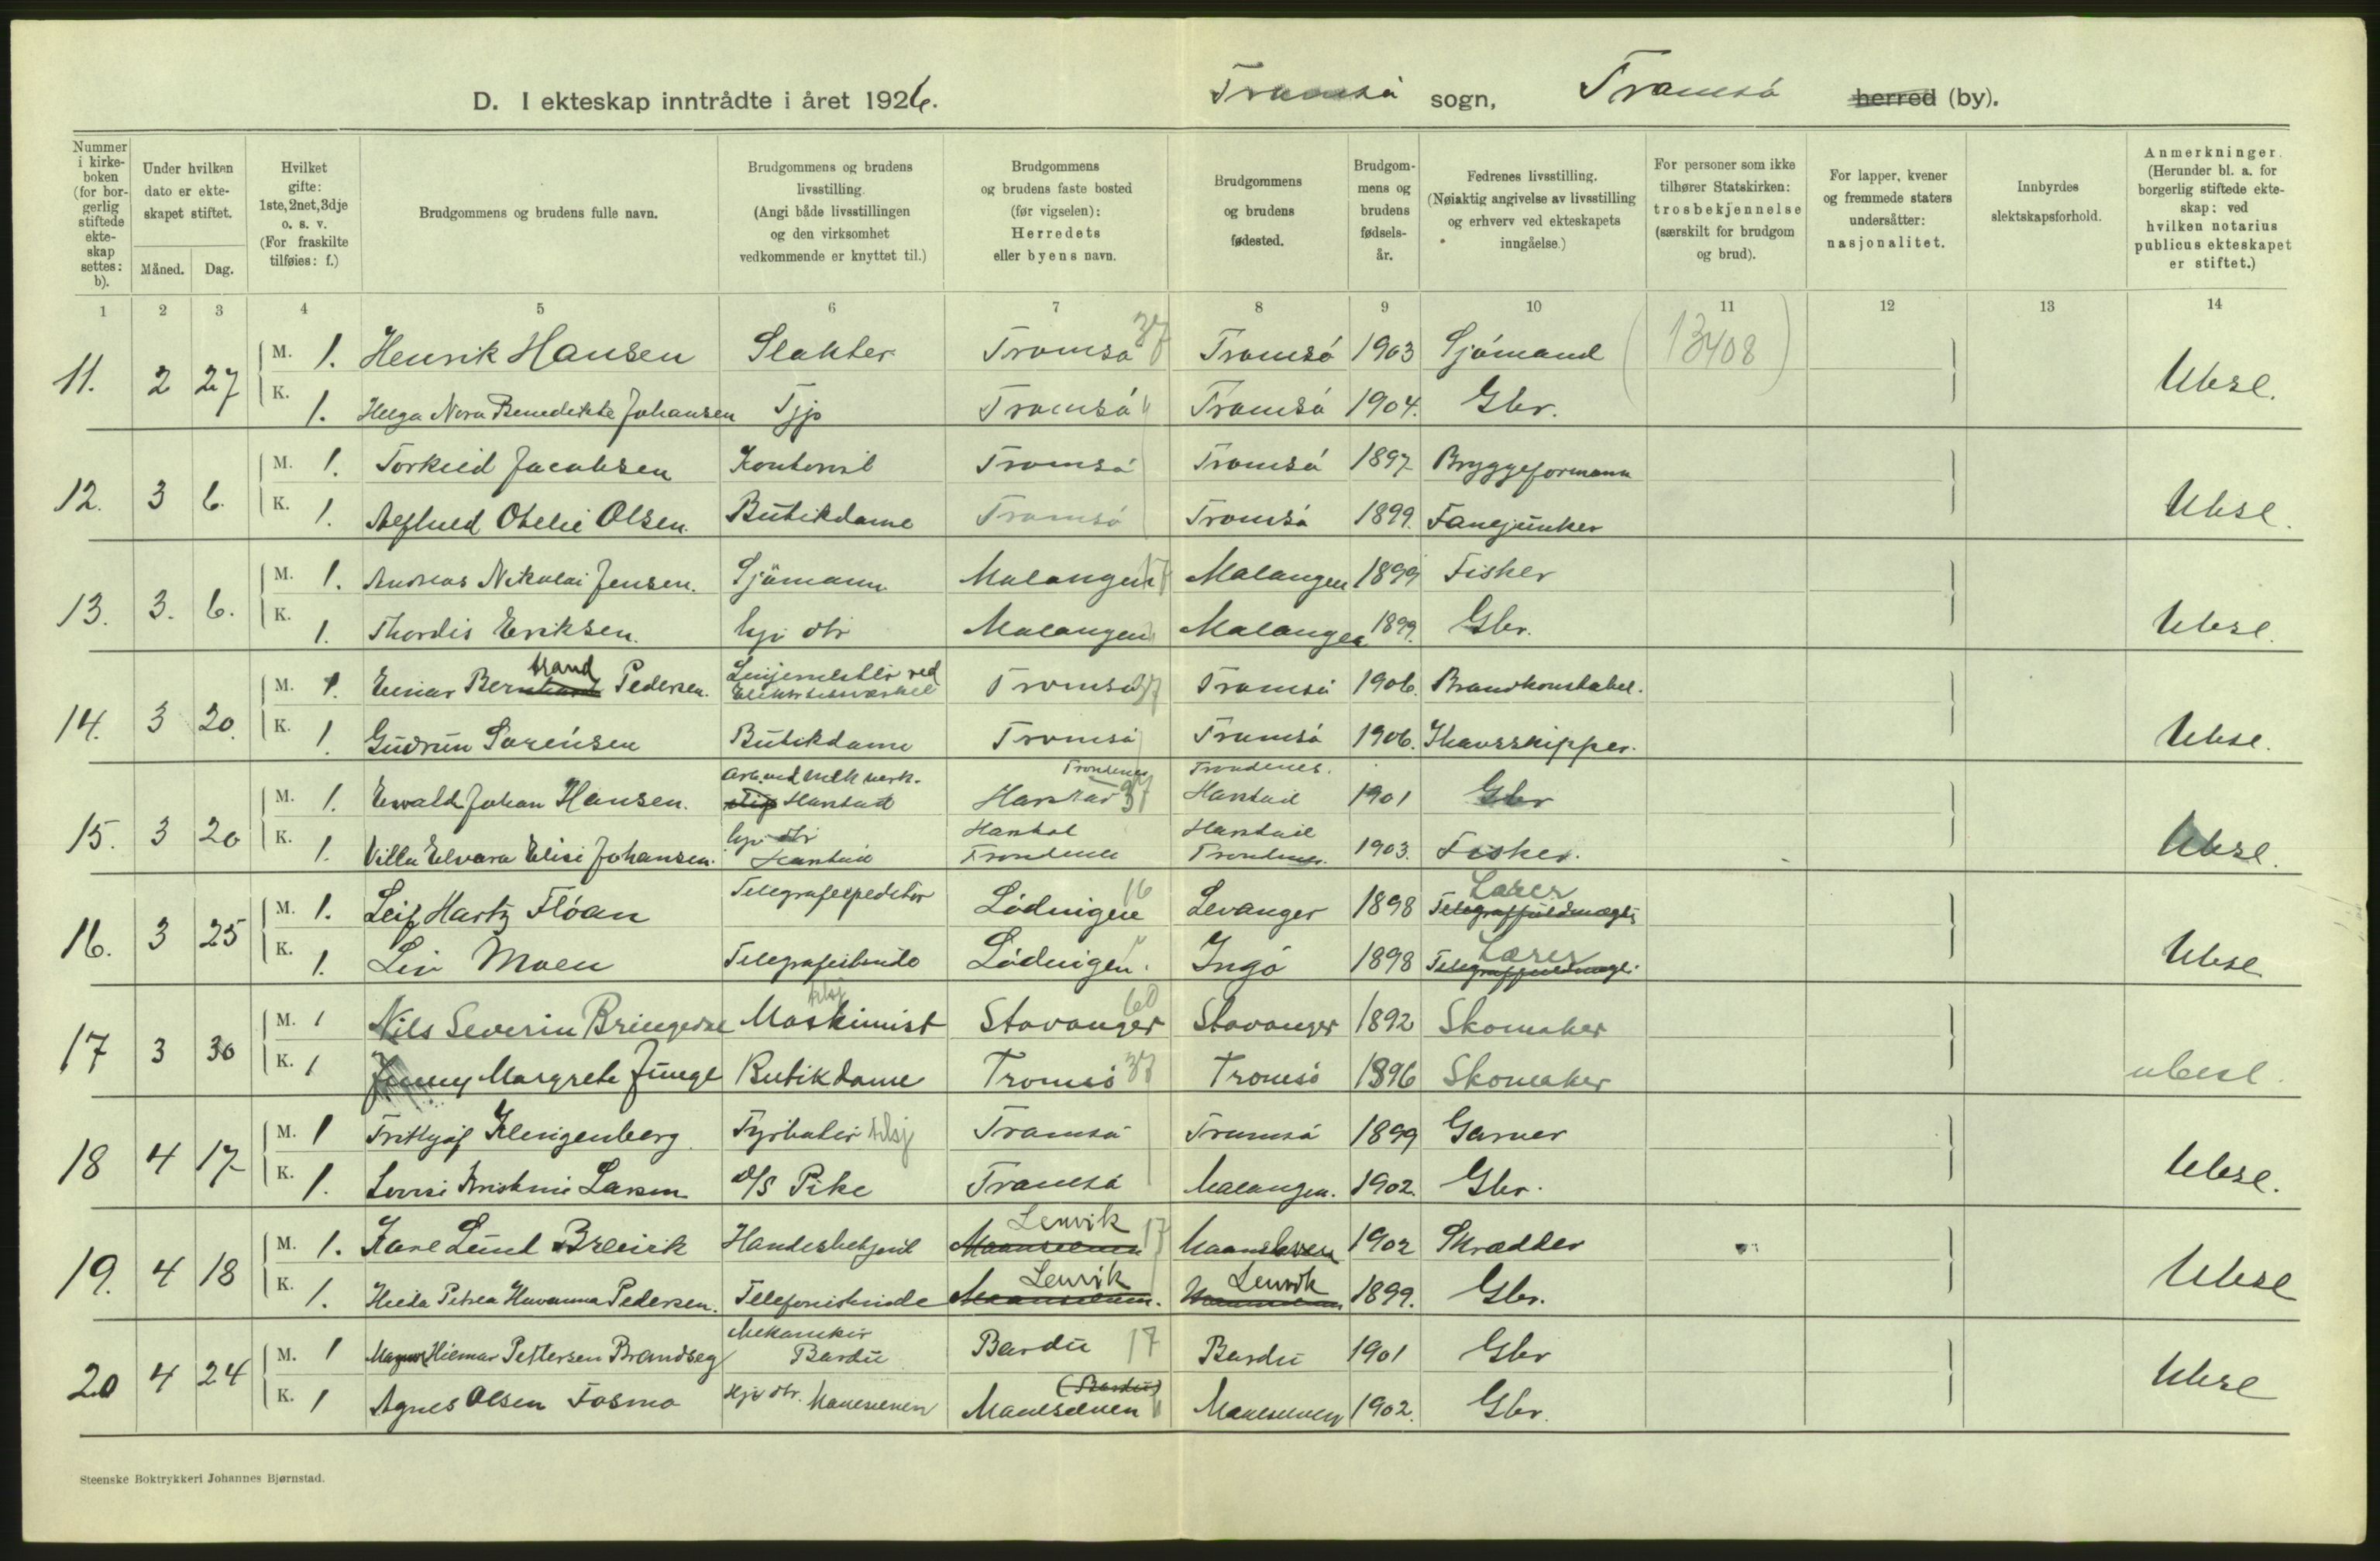 D. I ekteskap inntrådte i året 1926.
Tromsø sogn, Tromsø herred (by).
Nummer i kirkeboken (for borgerlig stiftede ekteskap settes: b).
Under hvilken dato er ekteskapet stiftet.
Måned. Dag.
Hvilket gifte: 1ste, 2net, 3dje o. s. v. (For fraskilte tilføies: f.)
Brudgommens og brudens fulle navn.
Brudgommens og brudens livsstilling. (Angi både livsstillingen og den virksomhet vedkommende er knyttet til.)
Brudgommens og brudens faste bosted (før vigselen): Herredets eller byens navn.
Brudgommens og brudens fødested.
Brudgommens og brudens fødselsår.
Fedrenes livsstilling. (Nøiaktig angivelse av livsstilling og erhverv ved ekteskapets inngåelse.)
For personer som ikke tilhører Statskirken: trosbekjennelse (særskilt for brudgom og brud).
For lapper, kvener og fremmede staters undersåtter: nasjonalitet.
Innbyrdes slektskapsforhold.
Anmerkninger. (Herunder bl. a. for borgerlig stiftede ekteskap: ved hvilken notarius publicus ekteskapet er stiftet.)
1 2 3 4 5 6 7 8 9 10 11 12 13 14
11. 2 27 M. 1. Henrik Hansen Slakter Tromsø 37 Tromsø 1903 Sjømand (13408) Ubesl.
K. 1. Helga Nora Benedikte Johansen Tjp Tromsø " Tromsø 1904. Gbr.
12. 3 6. M. 1. Torkild Jacobsen Kontorist Tromsø Tromsø 1897 Bryggeformann Ubesl.
K. 1. Otelie Olsen. Butikdame Tromsø Tromsø 1899. Fanejunker
13. 3. 6. M. 1. Andreas Nikolai Jensen. Sjömann Malangen 17 Malangen 1899 Fisker Ubesl.
K. 1. Thordis Eriksen. hj. dtr Malangen Malangen 1899. Gbr.
14. 3 20. M. 1. Einar Bernhard brand Pedersen. Linjemester ved Elektrisitsverket Tromsø 37 Tromsø 1906. Brandkonstabel. Ubesl.
K. 1. Gudrun Sørensen Butikdame Tromsø Tromsø 1906. Ishavsskipper.
15. 3 20 M. 1. Ewald Johan Hansen. Arb. ved mek verk. Harstad Trondenes Harstad 37 Trondenes. Harstad 1901 Gbr Ubesl.
K. 1. Villa Elvara Elise Johansen. hj. dtr Harstad Harstad Trondenes Harstad Trondenes. 1903. Fisker.
16. 3 25 M. 1. Leif Hartz Flóan Telegrafexpeditør Lødingen 16 Levanger 1898 Lærer Telegraffuldmægt. Ubesl
K. 1. Liv Moen Telegrafistinde Lødingen " Ingø 1898 Lærer Telegraffuldmægt.
17 3 30 M. 1 Nils Severin Bringedal Maskinist Stavanger 60 Stavanger 1892 Skomaker ubesl.
K. 1 Jenny Margrete Junge Butikdame Tromsø 37 Tromsø 1896 Skomaker
18 4 17 M. 1 Fritjof Klingenberg. Fyrbøter Tromsø Tromsø 1899 Garver Ubesl.
K. 1. Lovise Kristine Larsen D/S Pike Tromsø Malangen. 1902. Gbr.
19. 4 18 M. 1. Kare Lund Breivik Handelsbetjent Lenvik Maanselven 17 Maanselven 1902 Skrædder Ubesl
K. 1. Hilda Petrea Huvanna Pedersen. Telefonistinde Lenvik Maanselven. Lenvik Maanselven 1899. Gbr.
20 4 24 M. 1 Magnus Hilmar Pettersen Brandseg Mekaniker Bardu Bardu 17 Bardu 1901 Gbr Ubesl
K. 1 Agnes Olsen Fosmo Hj. dtr. Maaselven (Bardu) Maaselven " Maaselven 1902. Gbr.
Steenske Boktrykkeri Johannes Bjørnstad.